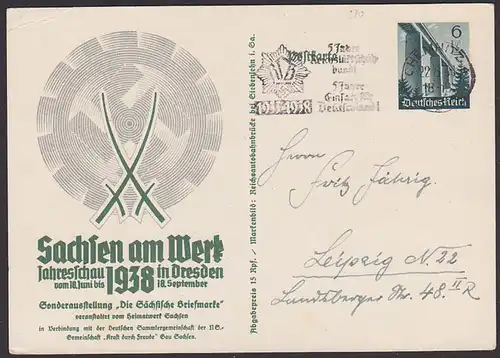 Sachsen am Werk
Jahresschau 1938 in Dresden
vom 18. Juni bis 18. September
Sonderausstellung „Die Sächsische Briefmarke"
veranstaltet vom Heimatwerk Sachsen
in Verbindung mit der Deutschen Sammlergemeinschaft der NS.-
Gemeinschaft „Kraft durch Freude" Gau Sachsen.
Abgabepreis 15 Rpf. / Markenbild: Reichsautobahnbrücke bei Siebenlehn i. Sa.
Postkarte
5 Jahre
Reichsluftschutz
bund
5 Jahre
Einsatz für
Deutschland
RLB
1933-1938
6
Deutsches Reich
22
18
Herrn
Fritz Jährig.
Leipzig N. 22
Landsberger Str. 48. II R